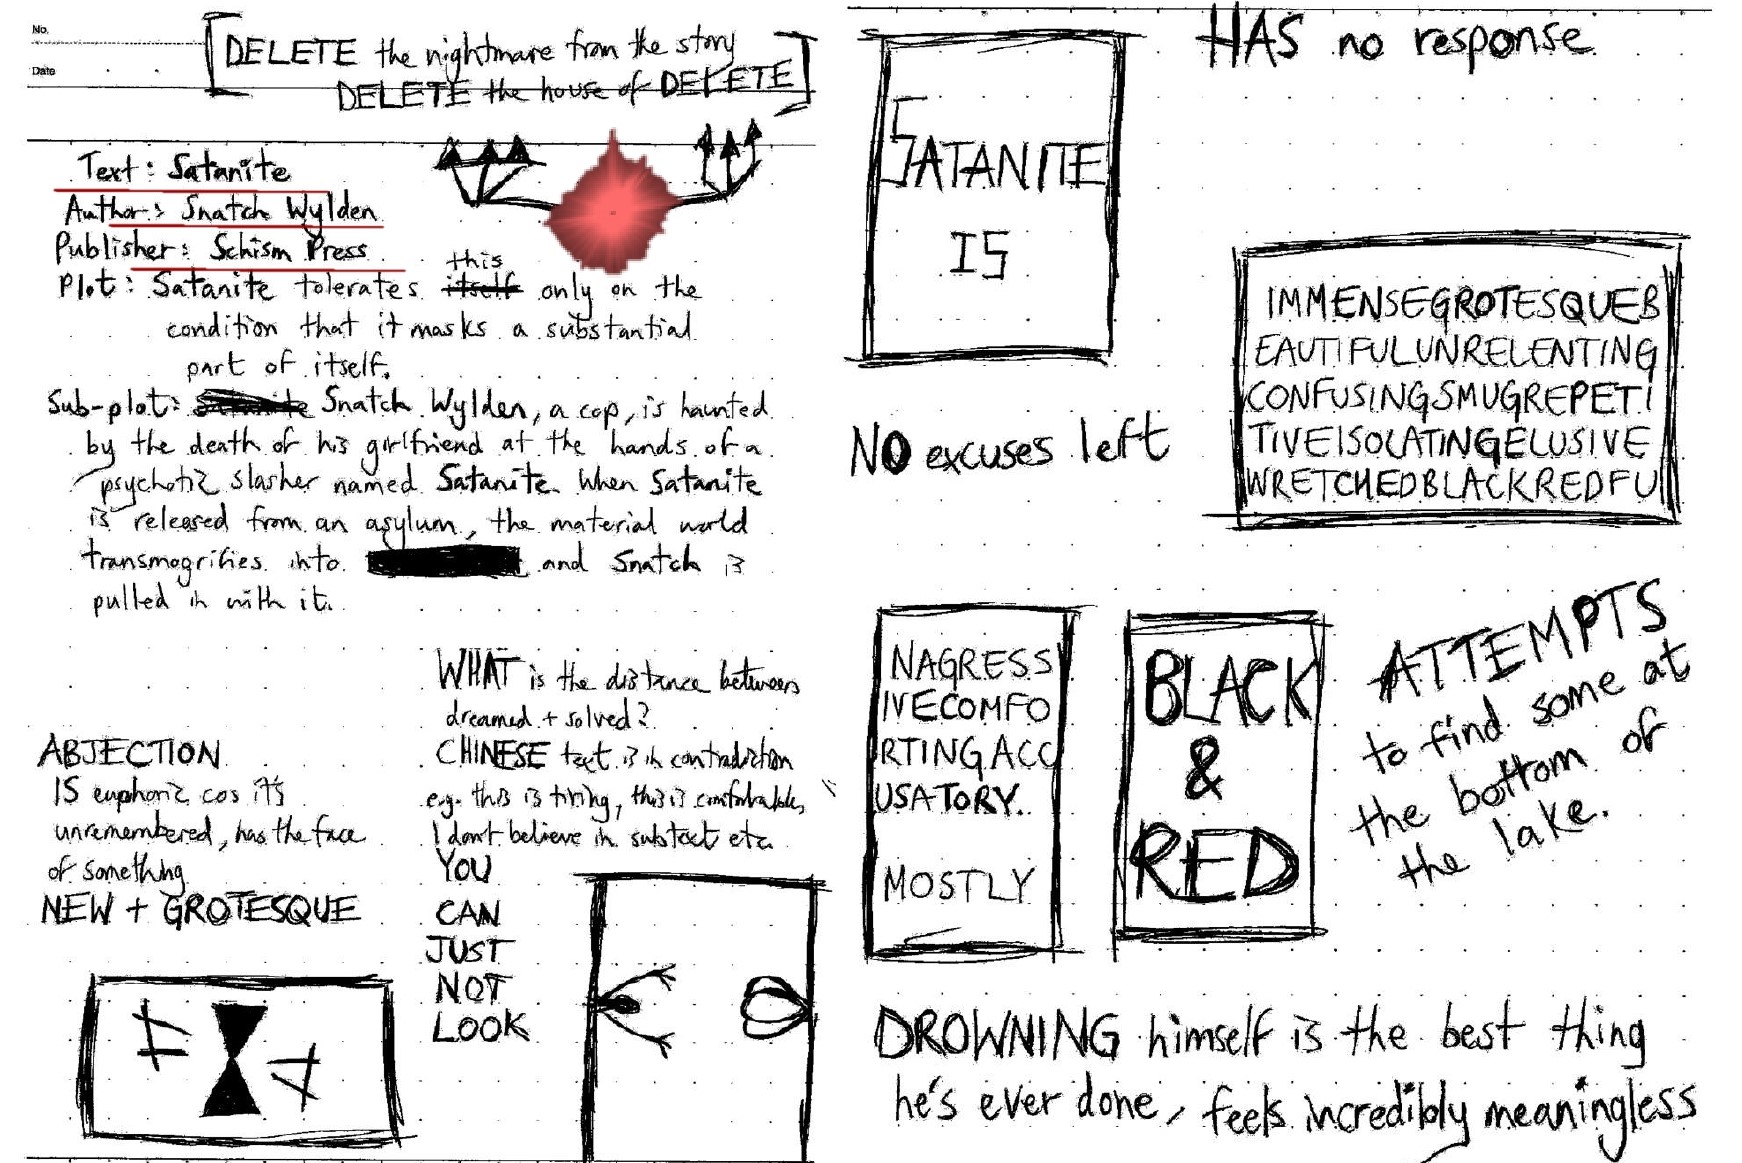 No.
Date
DELETE the nightmare from the story
DELETE the house of DELETE
Text: Satanite
Author: Snatch Wylden
Publisher: Schism Press
this
Plot: Satanite tolerates itself only on the
condition that it masks a substantial
part of itself.
Sub-plot: Snatch Wylden, a cop, is haunted
by the death of his girlfriend at the hands of a
psychotic slasher named Satanite. When Satanite
is released from an asylum, the material world
transmogrifies into and Snatch is
pulled in with it.
WHAT is the distance between
dreamed + solved?
ABJECTION
IS euphoric cos it's
unremembered, has the face
of something
NEW + GROTESQUE
CHINESE text is in contradiction
e.g. this is tiring, this is comfortable,
I don't believe in subtext etc.
YOU
CAN
JUST
NOT
LOOK
HAS no response
SATANITE
IS
IMMENSEGROTESQUEB
EAUTIFULUNRELENTING
CONFUSINGSMUGREPETI
TIVEISOLATINGELUSIVE
WRETCHEDBLACKREDFU
NO excuses left
NAGRESS
IVECOMFO
RTINGACC
USATORY.
MOSTLY
BLACK
&
RED
ATTEMPTS
to find some at
the bottom of
the lake.
DROWNING himself is the best thing
he's ever done, feels incredibly meaningless